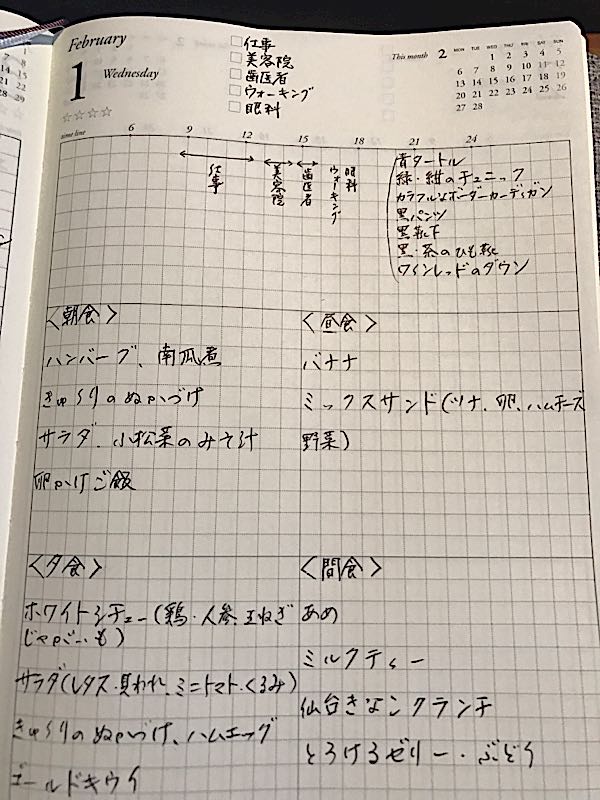 February
1
Wednesday
☆☆☆☆
□仕事
□美容院
□歯医者
□ウォーキング
□眼科
This month 2
MON TUE WED THU FRI SAT SUN
1 2 3 4 5
6 7 8 9 10 11 12
13 14 15 16 17 18 19
20 21 22 23 24 25 26
27 28
time line 6 9 12 15 18 21 24
仕事
美容院
歯医者
ウォーキング
眼科
青タートル
緑・紺のチュニック
カラフルなボーダーカーディガン
黒パンツ
黒靴下
黒・茶のひも靴
ワインレッドのダウン
〈朝食〉
ハンバーグ、南瓜煮
きゅうりのぬかづけ
サラダ、小松菜のみそ汁
卵かけご飯
〈昼食〉
バナナ
ミックスサンド(ツナ、卵、ハムチーズ
野菜)
〈夕食〉
ホワイトシチュー(鶏・人参、玉ねぎ
じゃがいも)
サラダ(レタス・貝われ、ミニトマト・くるみ)
きゅうりのぬかづけ、ハムエッグ
ゴールドキウイ
〈間食〉
あめ
ミルクティー
仙台きなこクランチ
とろけるゼリー・ぶどう